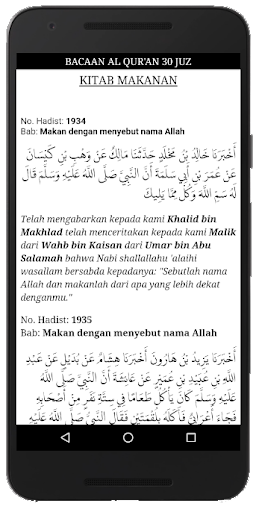 BACAAN AL QUR'AN 30 JUZ
KITAB MAKANAN
No. Hadist: 1934
Bab: Makan dengan menyebut nama Allah
أَخْبَرَنَا خَالِدُ بْنُ مَخْلَدٍ حَدَّثَنَا مَالِكٌ عَنْ وَهْبِ بْنِ كَيْسَانَ
عَنْ عُمَرَ بْنِ أَبِي سَلَمَةَ أَنَّ النَّبِيَّ صَلَّى اللَّهُ عَلَيْهِ وَسَلَّمَ قَالَ
لَهُ سَمِّ اللَّهَ وَكُلْ مِمَّا يَلِيكَ
Telah mengabarkan kepada kami Khalid bin
Makhlad telah menceritakan kepada kami Malik
dari Wahb bin Kaisan dari Umar bin Abu
Salamah bahwa Nabi shallallahu 'alaihi
wasallam bersabda kepadanya: "Sebutlah nama
Allah dan makanlah dari apa yang lebih dekat
denganmu."
No. Hadist: 1935
Bab: Makan dengan menyebut nama Allah
أَخْبَرَنَا يَزِيدُ بْنُ هَارُونَ أَخْبَرَنَا هِشَامٌ عَنْ بُدَيْلٍ عَنْ عَبْدِ
اللَّهِ بْنِ عُبَيْدِ بْنِ عُمَيْرٍ عَنْ عَائِشَةَ أَنَّ النَّبِيَّ صَلَّى اللَّهُ
عَلَيْهِ وَسَلَّمَ كَانَ يَأْكُلُ طَعَامًا فِي سِتَّةِ نَفَرٍ مِنْ أَصْحَابِهِ
فَجَاءَ أَعْرَابِيٌّ فَأَكَلَهُ بِلُقْمَتَيْنِ فَقَالَ النَّبِيُّ صَلَّى اللَّهُ